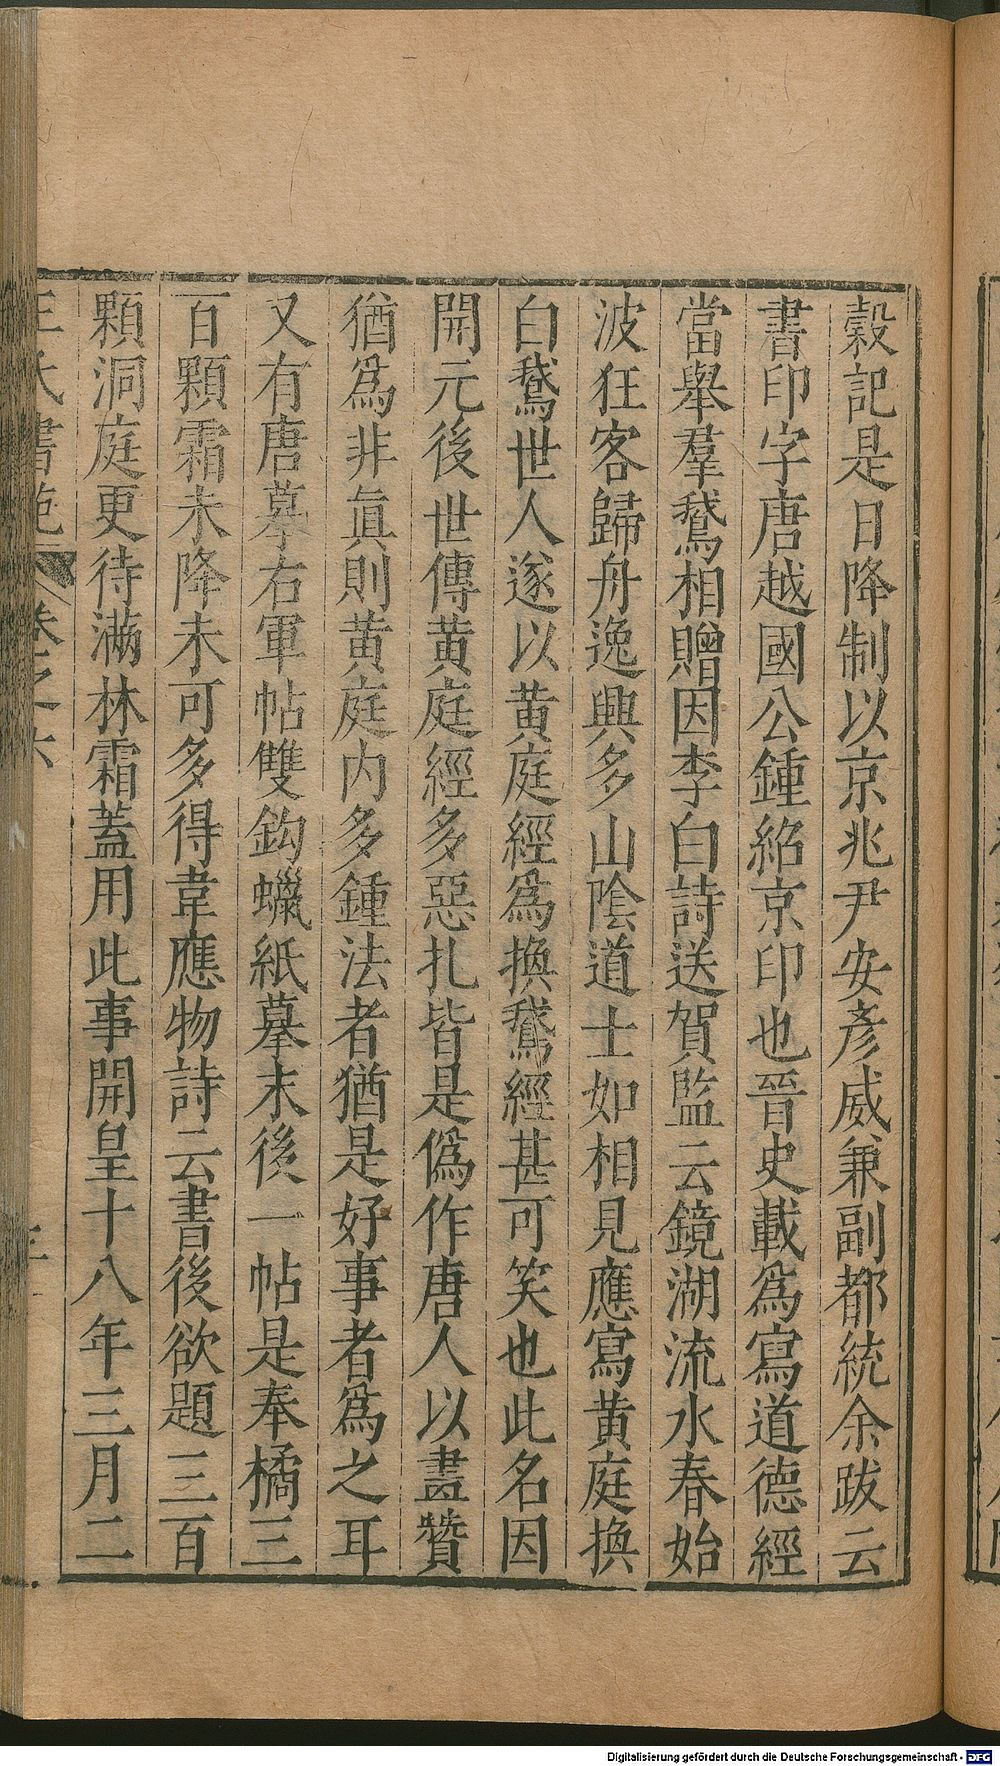 縠記是日降制以京兆尹安彥威兼副都統余跋云
書印字唐越國公鍾紹京印也晉史載爲寫道德經
當舉羣鵞相贈因李白詩送賀監云鏡湖流水春始
波狂客歸舟逸興多山陰道士如相見應寫黃庭換
白鵞世人遂以黃庭經爲換鵞經甚可笑也此名因
開元後世傳黃庭經多惡扎皆是僞作唐人以畫贊
猶爲非眞則黃庭内多鍾法者猶是好事者爲之耳
又有唐摹右軍帖雙鈎蠟紙摹末後一帖是奉橘三
百顆霜未降未可多得韋應物詩云書後欲題三百
顆洞庭更待滿林霜蓋用此事開皇十八年三月二
王氏書苑 卷之六
Digitalisierung gefördert durch die Deutsche Forschungsgemeinschaft - DFG